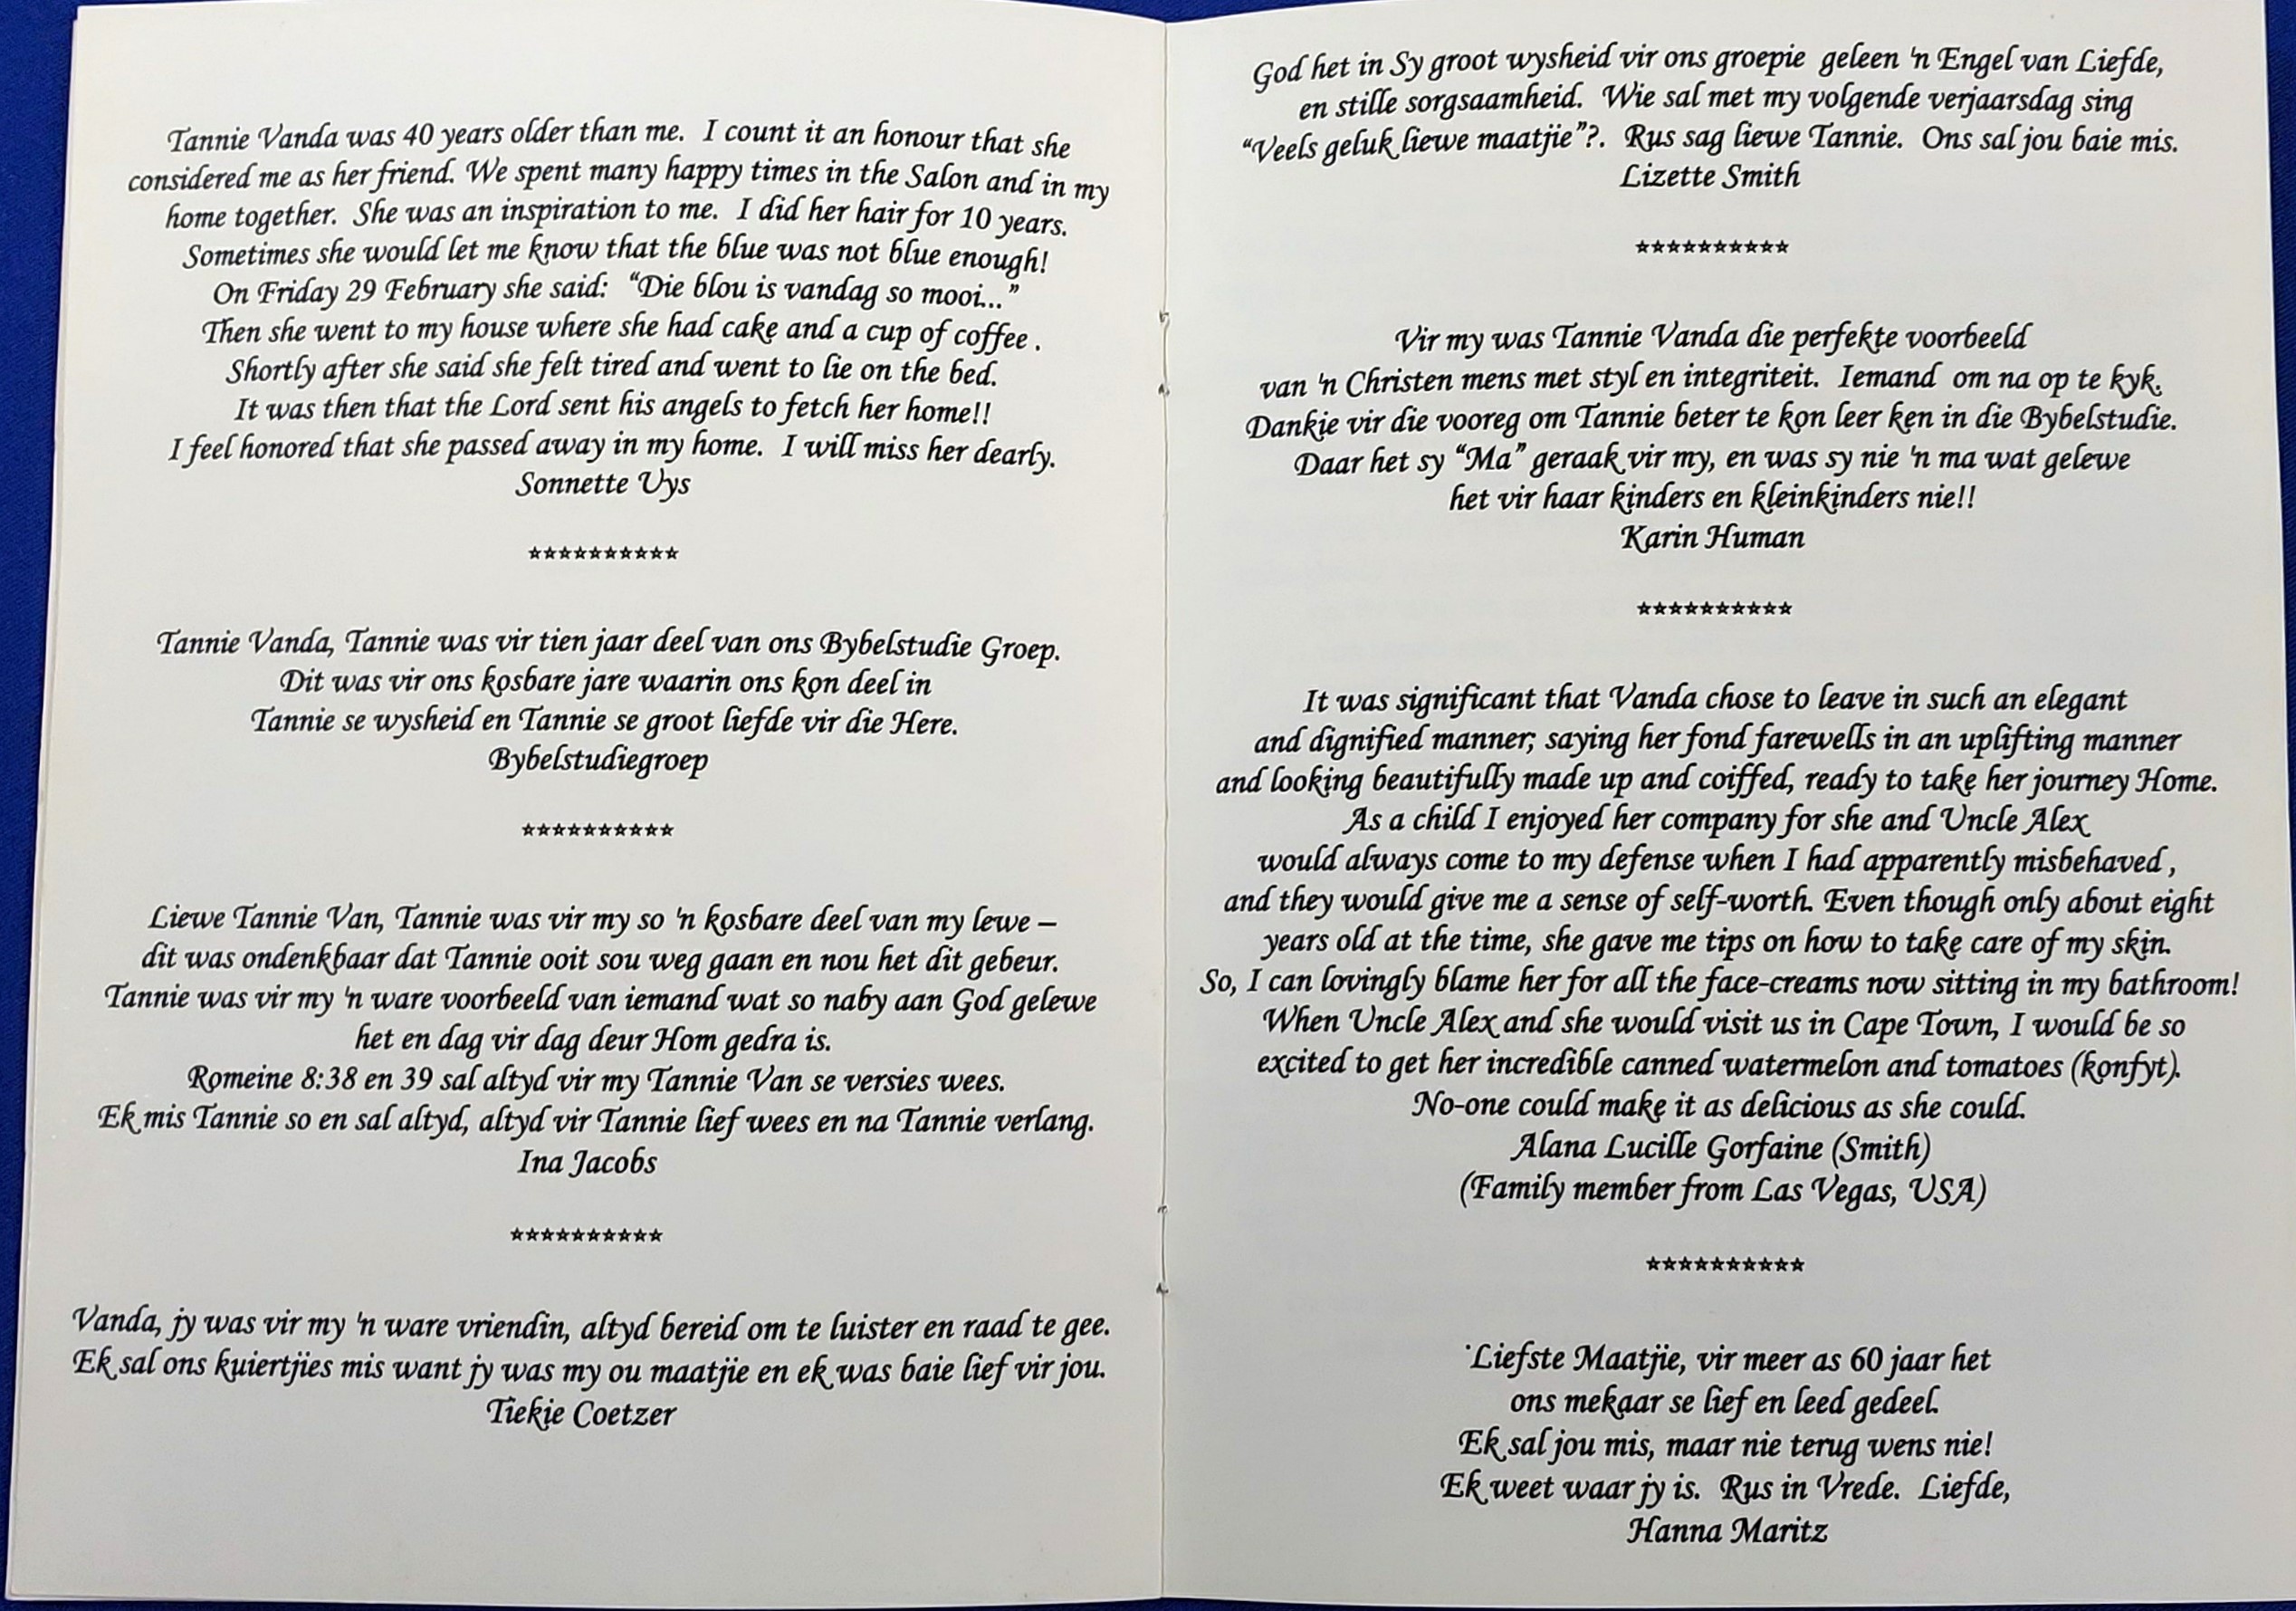 Tannie Vanda was 40 years older than me. I count it an honour that she
considered me as her friend. We spent many happy times in the Salon and in my
home together. She was an inspiration to me. I did her hair for 10 years.
Sometimes she would let me know that the blue was not blue enough!
On Friday 29 February she said: “Die blou is vandag so mooi...”
Then she went to my house where she had cake and a cup of coffee .
Shortly after she said she felt tired and went to lie on the bed.
It was then that the Lord sent his angels to fetch her home!!
I feel honored that she passed away in my home. I will miss her dearly.
Sonnette Uys
**********
Tannie Vanda, Tannie was vir tien jaar deel van ons Bybelstudie Groep.
Dit was vir ons kosbare jare waarin ons kon deel in
Tannie se wysheid en Tannie se groot liefde vir die Here.
Bybelstudiegroep
**********
Liewe Tannie Van, Tannie was vir my so 'n kosbare deel van my lewe –
dit was ondenkbaar dat Tannie ooit sou weg gaan en nou het dit gebeur.
Tannie was vir my 'n ware voorbeeld van iemand wat so naby aan God gelewe
het en dag vir dag deur Hom gedra is.
Romeine 8:38 en 39 sal altyd vir my Tannie Van se versies wees.
Ek mis Tannie so en sal altyd, altyd vir Tannie lief wees en na Tannie verlang.
Ina Jacobs
**********
Vanda, jy was vir my 'n ware vriendin, altyd bereid om te luister en raad te gee.
Ek sal ons kuiertjies mis want jy was my ou maatjie en ek was baie lief vir jou.
Tiekie Coetzer
God het in Sy groot wysheid vir ons groepie geleen 'n Engel van Liefde,
en stille sorgsaamheid. Wie sal met my volgende verjaarsdag sing
“Veels geluk liewe maatjie”?. Rus sag liewe Tannie. Ons sal jou baie mis.
Lizette Smith
**********
Vir my was Tannie Vanda die perfekte voorbeeld
van 'n Christen mens met styl en integriteit. Iemand om na op te kyk.
Dankie vir die vooreg om Tannie beter te kon leer ken in die Bybelstudie.
Daar het sy “Ma” geraak vir my, en was sy nie 'n ma wat gelewe
het vir haar kinders en kleinkinders nie!!
Karin Human
**********
It was significant that Vanda chose to leave in such an elegant
and dignified manner; saying her fond farewells in an uplifting manner
and looking beautifully made up and coiffed, ready to take her journey Home.
As a child I enjoyed her company for she and Uncle Alex
would always come to my defense when I had apparently misbehaved ,
and they would give me a sense of self-worth. Even though only about eight
years old at the time, she gave me tips on how to take care of my skin.
So, I can lovingly blame her for all the face-creams now sitting in my bathroom!
When Uncle Alex and she would visit us in Cape Town, I would be so
excited to get her incredible canned watermelon and tomatoes (konfyt).
No-one could make it as delicious as she could.
Alana Lucille Gorfaine (Smith)
(Family member from Las Vegas, USA)
**********
Liefste Maatjie, vir meer as 60 jaar het
ons mekaar se lief en leed gedeel.
Ek sal jou mis, maar nie terug wens nie!
Ek weet waar jy is. Rus in Vrede. Liefde,
Hanna Maritz